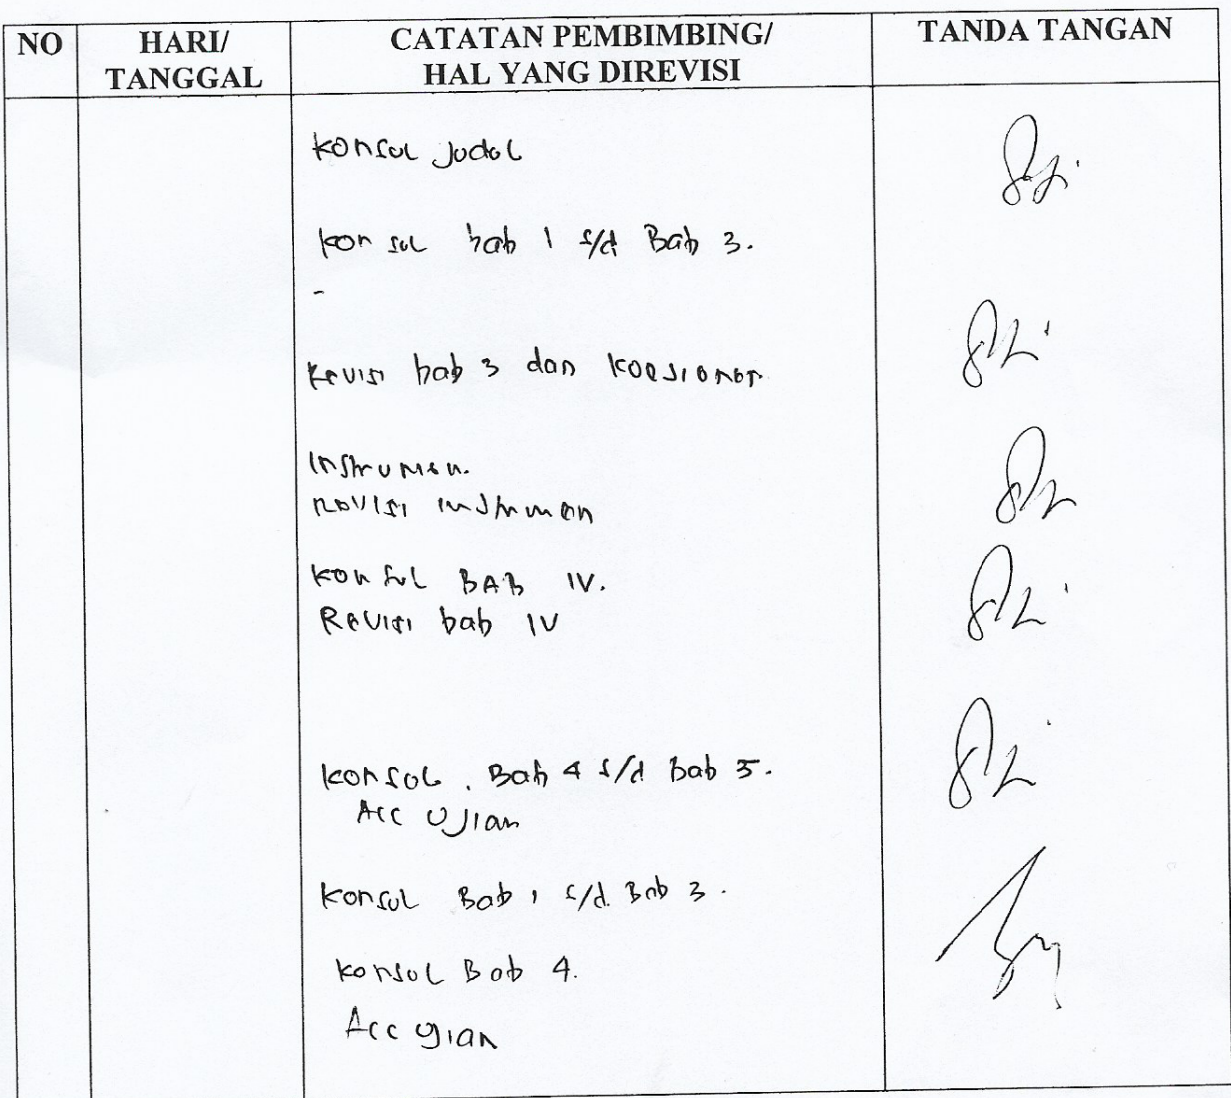 NO HARI/ CATATAN PEMBIMBING/ TANDA TANGAN
TANGGAL HAL YANG DIREVISI
Konsul Judul
Konsul bab 1 s/d Bab 3.
-
Revisi bab 3 dan koesioner
Instrumen.
Revisi instrumen
Konsul BAB IV.
Revisi bab IV
Konsul . Bab 4 s/d Bab 5.
Acc Ujian
Konsul Bab 1 s/d Bab 3.
Konsul Bab 4.
Acc Ujian